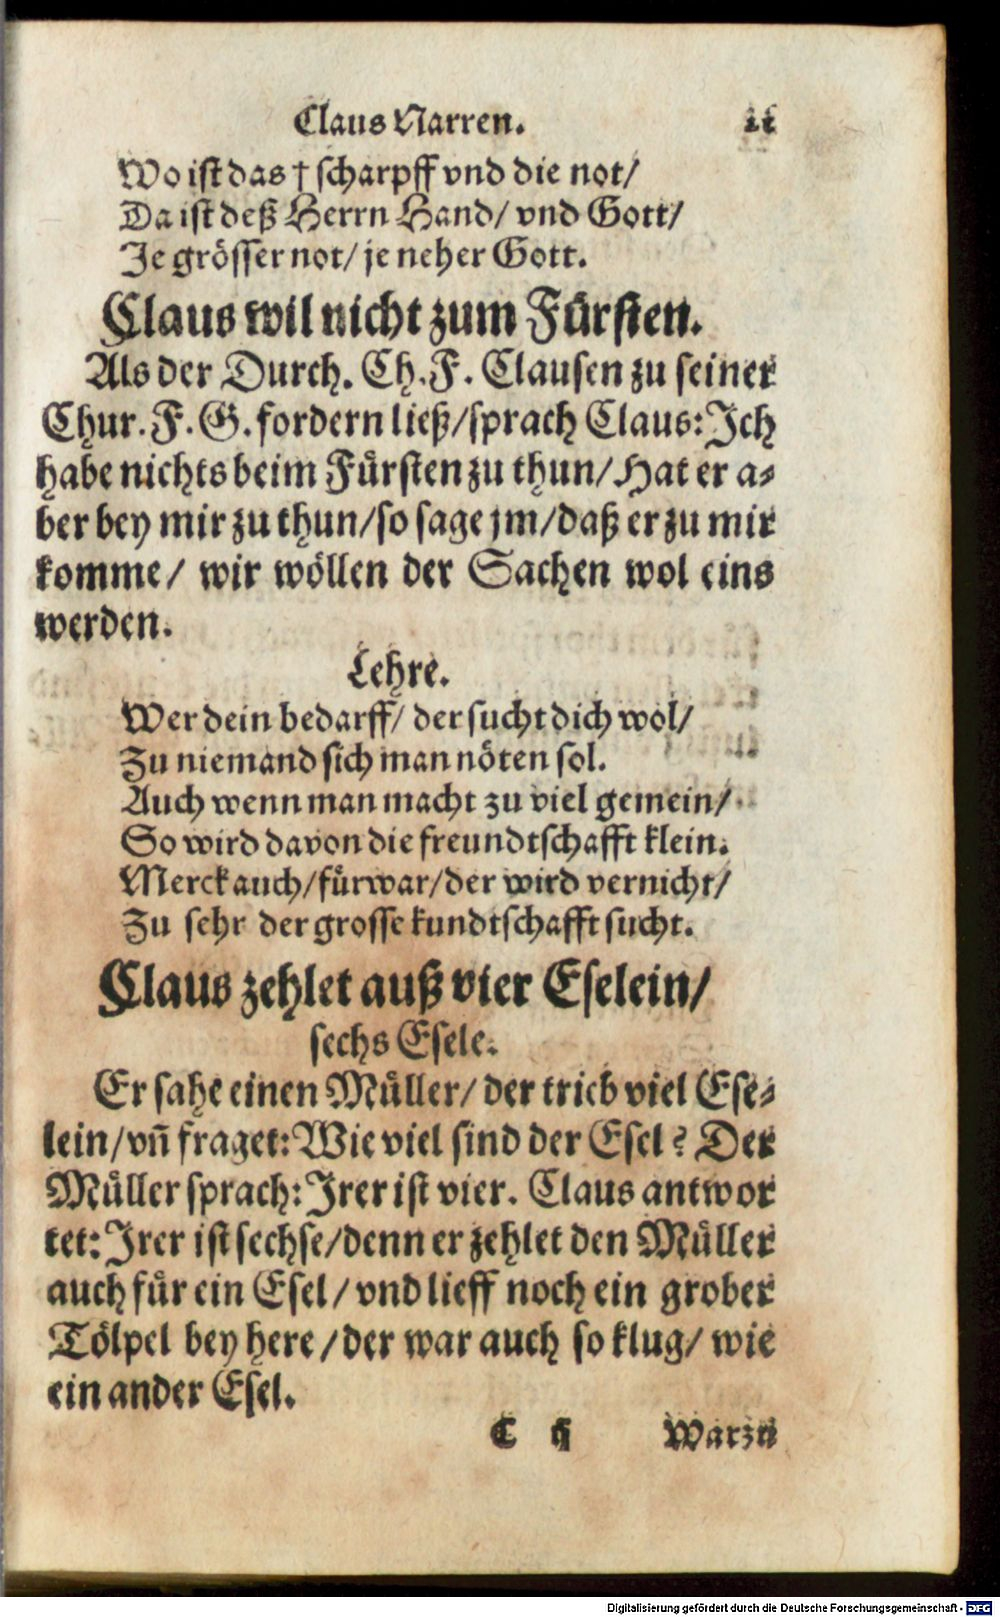 Claus Narren.
Wo ist das † scharpff vnd die not/
Da ist deß Herrn Hand/ vnd Gott/
Je grösser not/ je neher Gott.
Claus wil nicht zum Fürsten.
Als der Durch. Ch. F. Clausen zu seiner
Chur. F. G. fordern ließ/sprach Claus: Ich
habe nichts beim Fürsten zu thun/ Hat er a-
ber bey mir zu thun/so sage jm/daß er zu mir
komme/ wir wöllen der Sachen wol eins
werden.
Lehre.
Wer dein bedarff/ der sucht dich wol/
Zu niemand sich man nöten sol.
Auch wenn man macht zu viel gemein/
So wird davon die freundtschafft klein.
Merck auch/fürwar/der wird vernicht/
Zu sehr der grosse kundtschafft sucht.
Claus zehlet auß vier Eselein/
sechs Esele.
Er sahe einen Müller/ der trieb viel Ese-
lein/vñ fraget: Wie viel sind der Esel? Der
Müller sprach: Irer ist vier. Claus antwor
tet: Irer ist sechse/denn er zehlet den Müller
auch für ein Esel/ vnd lieff noch ein grober
Tölpel bey here/der war auch so klug/ wie
ein ander Esel.
C ij Warzu
Digitalisierung gefördert durch die Deutsche Forschungsgemeinschaft - DFG